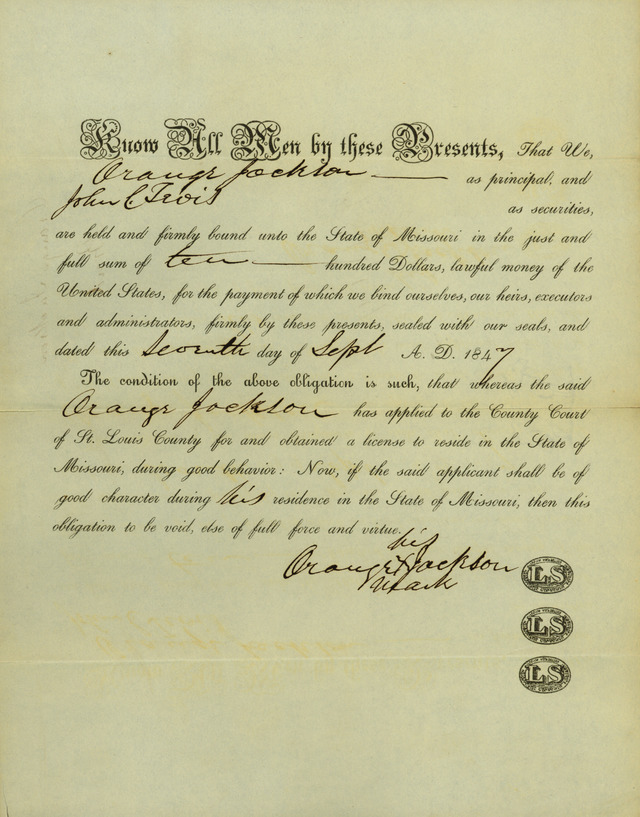 Know All Men by these Presents, That We,
Orange Jackson as principal, and
John C Ivois
as securities,
are held and firmly bound unto the State of Missouri in the just and
full sum of ten hundred Dollars, lawful money of the
United States, for the payment of which we bind ourselves, our heirs, executors
and administrators, firmly by these presents, sealed with our seals, and
dated this Seventh day of Sept A. D. 1847
The condition of the above obligation is such, that whereas the said
Orange Jackson has applied to the County Court
of St. Louis County for and obtained a license to reside in the State of
Missouri, during good behavior: Now, if the said applicant shall be of
good character during his residence in the State of Missouri, then this
obligation to be void, else of full force and virtue.
his
Orange X Jackson
Mark
LS
LS
LS